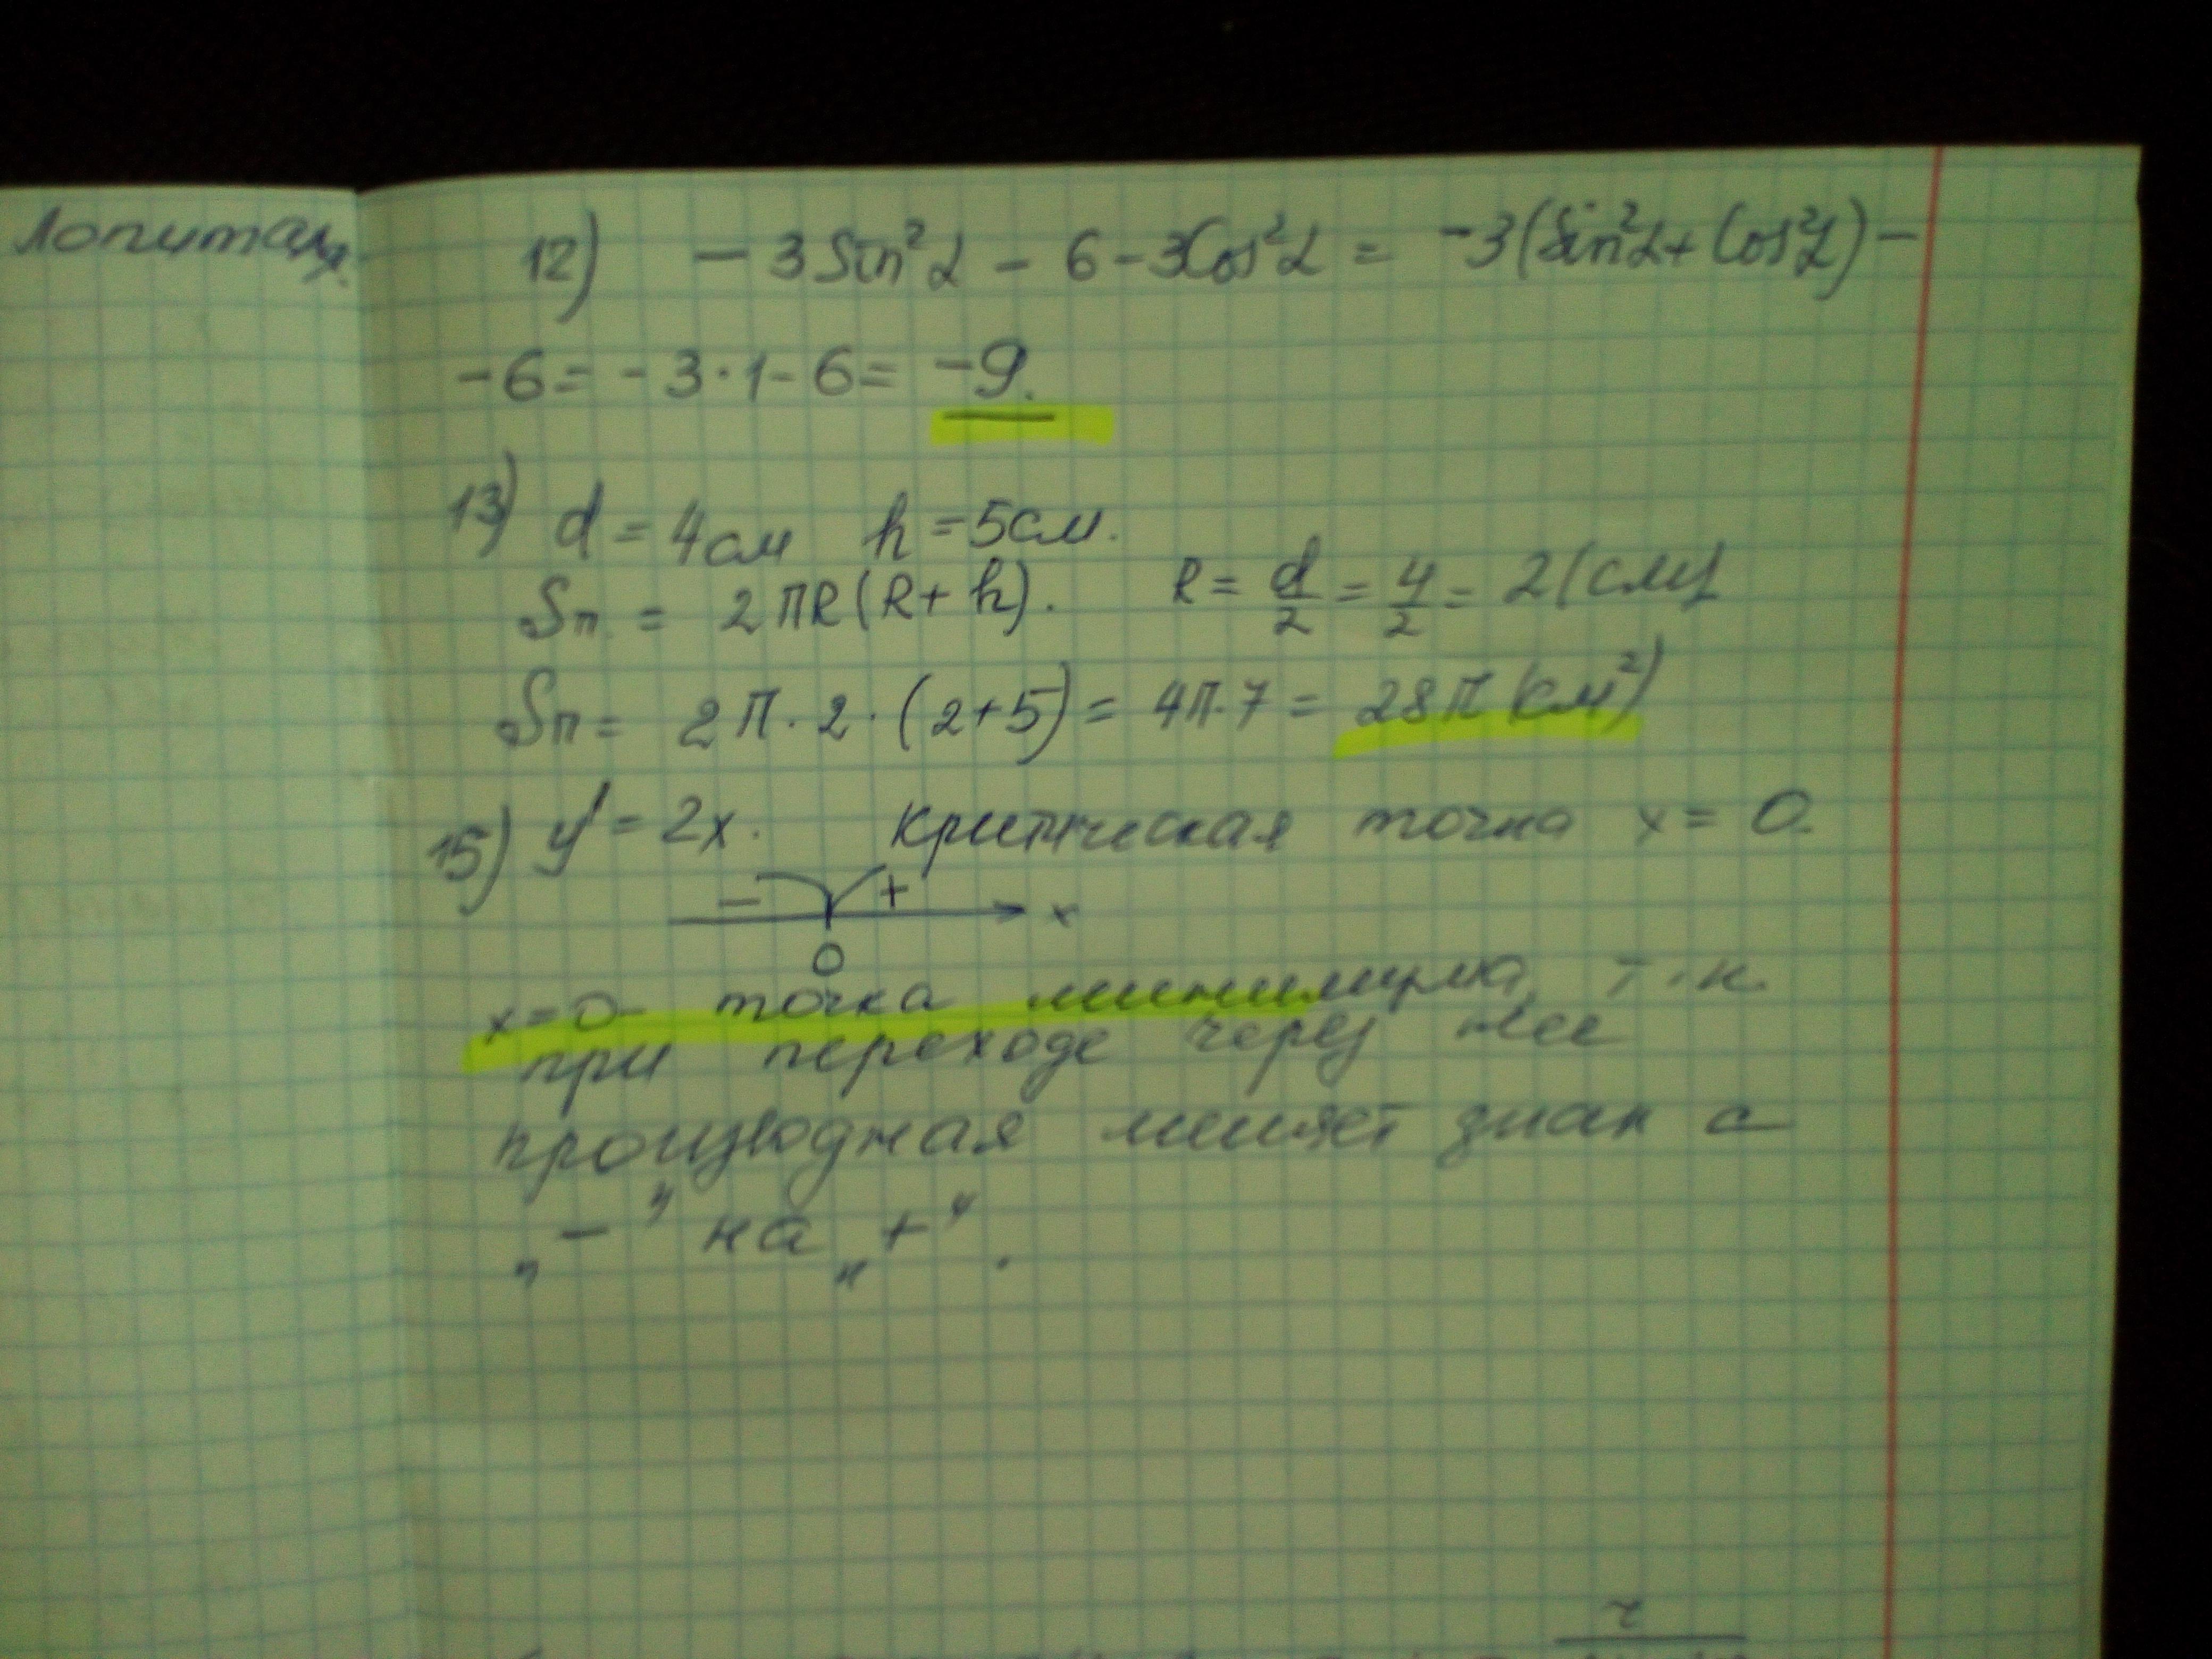 Лопиталя.
12) - 3 Sin²α - 6 - 3Cos²α = -3(Sin²α + Cos²α) -
- 6 = - 3 · 1 - 6 = -9.
13) d = 4 см h = 5 см.
Sп. = 2πR(R + h). R = d/2 = 4/2 = 2 (см)
Sп = 2π · 2 · (2+5) = 4π · 7 = 28π (см²)
15) y' = 2x. Критическая точка x = 0.
- + x
0
x = 0 - точка минимума, т.к.
при переходе через нее
производная меняет знак с
„-" на „+".